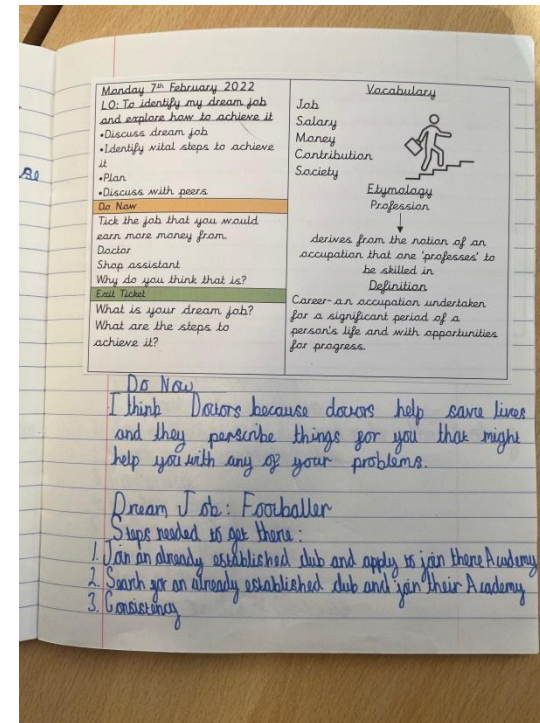 Be
Monday 7th February 2022
LO: To identify my dream job
and explore how to achieve it
•Discuss dream job
•Identify vital steps to achieve
it
•Plan
•Discuss with peers
Do Now
Tick the job that you would
earn more money from
Doctor
Shop assistant
Why do you think that is?
Exit Ticket
What is your dream job?
What are the steps to
achieve it?
Vocabulary
Job
Salary
Money
Contribution
Society
Etymology
Profession
derives from the notion of an
occupation that one 'professes' to
be skilled in
Definition
Career- an occupation undertaken
for a significant period of a
person's life and with opportunities
for progress.
Do Now
I think Doctors because doctors help save lives
and they perscribe things for you that might
help you with any of your problems.
Dream Job: Footballer
Steps needed to get there:
1. Join an already established club and apply to join there Academy
2. Search for an already established club and join their Academy
3. Consistency